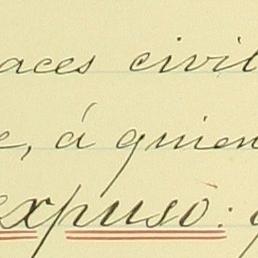 aces civil
e, á quien
expuso: q